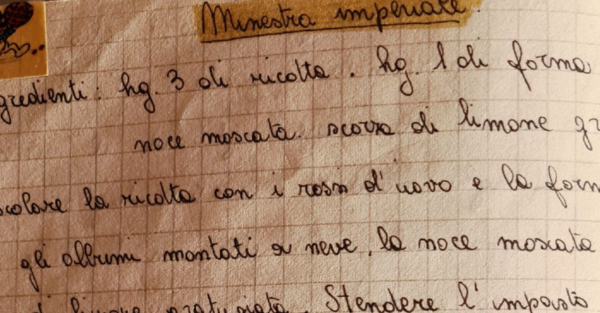 Minestra imperiale.
gredienti: hg. 3 di ricotta. hg. 1 di forma
noce moscata. scorza di limone gr
scolare la ricotta con i rossi d'uovo e la form
gli albumi montati a neve, la noce moscata
di limone grattugiata. Stendere l'impasto